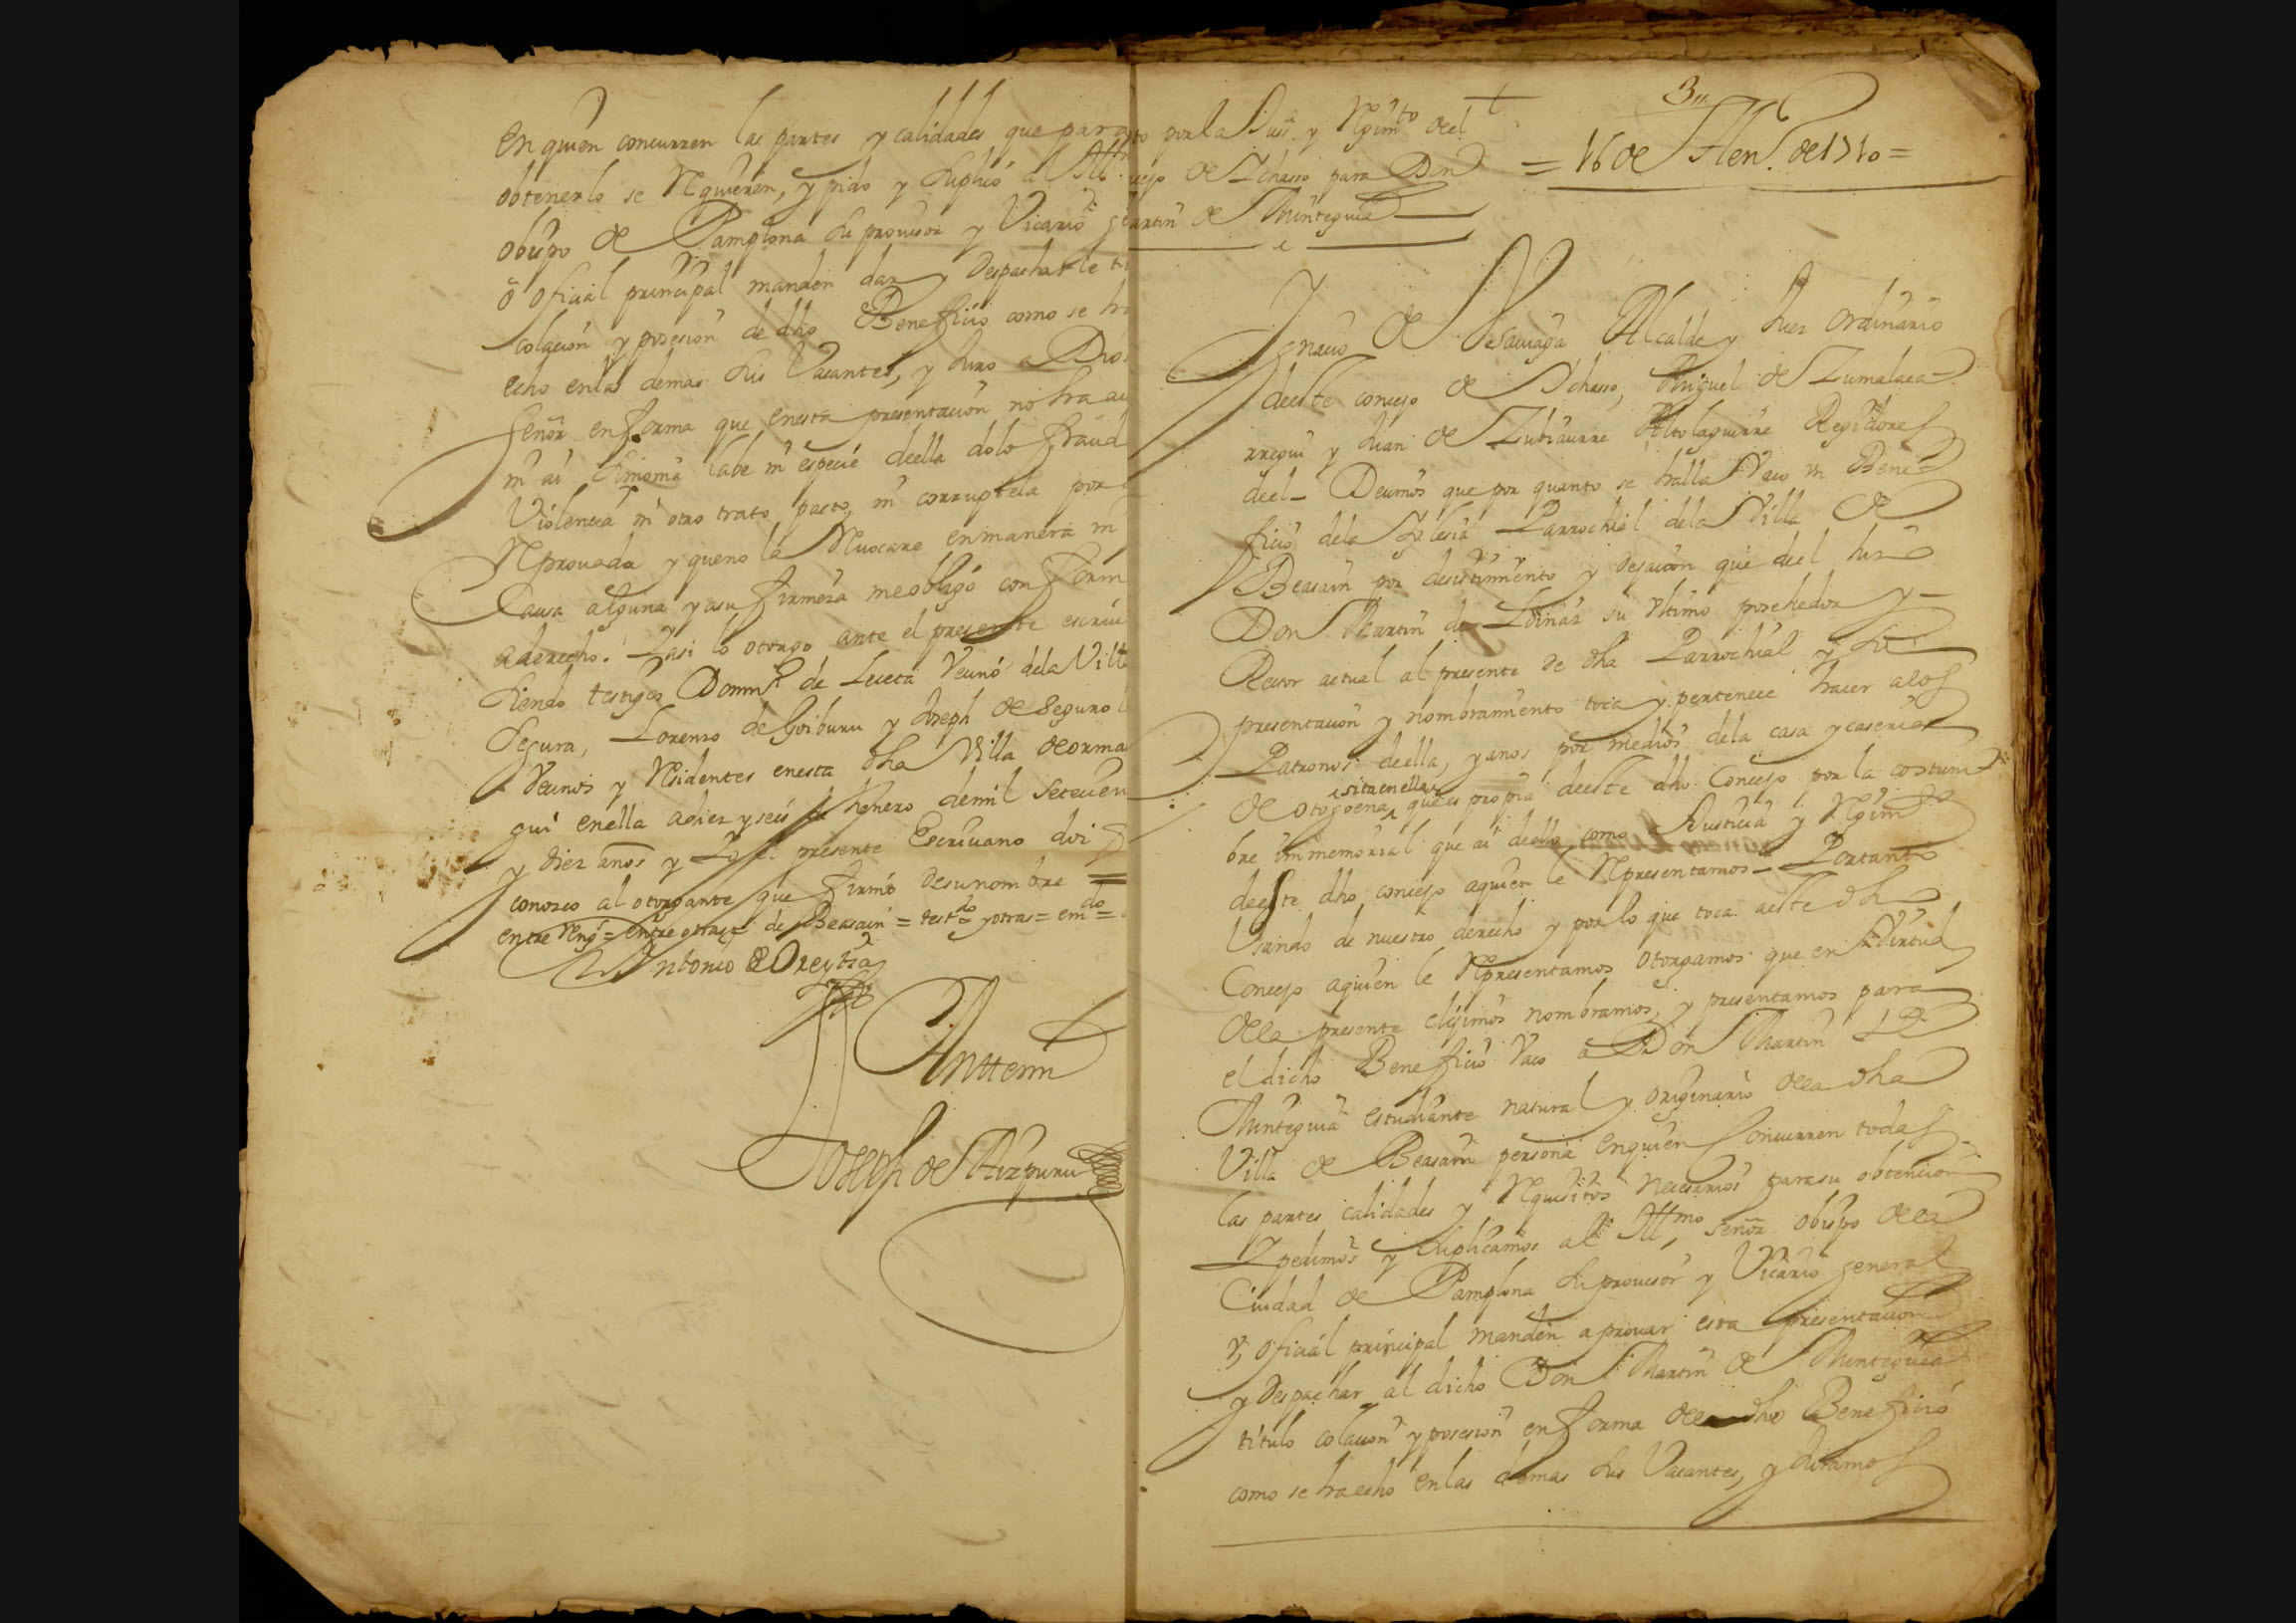 En quien concurren las partes y calidades que para
obtenerlo se Requieren, y pido y suplico al Illmo
obispo de Pamplona su provisor y Vicario g
ô oficial principal manden dar y Despacharle ti
colacion y posesion de dho Beneficio como se ha
echo enlas demas sus Vacantes, y Juro a Dios
señor en forma que enesta presentacion no ha au
ni ai simonia labe ni especie deella dolo fraud
Violencia ni otro trato pacto, ni corruptela por
Reprouada y queno la Reuocare enmanera ni
Causa alguna yasu firmeza meobligo con form
aderecho. Yasi lo otorgo ante el presente escriu
siendo testigos Domingo de Leceta Vecino dela Villa
Segura, Lorenzo de Goiburu y Joseph de Segurol
Vecinos y Residentes enesta dha Villa deorma
gui enella adiez yseis de henero demil Setecien
y diez años y Yo el presente Escriuano doi
conozco al otorgante que firmó desunombre =
entre Reng.s = entre otras = de Beasain = test.do yotras = em.do =
Antonio de Oreytia
Antemi
Joseph de Aizpuru
3
to porla Justa y Regim.to deel
cejo de Ichasso para Don
artin de Minteguia
= 16 de Hen.o de 1710 =
Ignacio de Alcalde y Juez Ordinario
deeste concejo de Ichasso, Miguel de Zumalaca-
rregui y Juan de Zubiaurre Altolaguirre Regidores
deel_ Decimos que por quanto se halla Vaco un Bene-
ficio dela Iglesia Parrochial dela Villa de
Beasain por desistimiento y dejacion que deel hizo
Don Martin de su Vltimo posehedor y-
Retor actual al presente de dha Parrochial y su
presentacion y nombramiento toca y pertenece hacer alos
Patronos deella, yanos por medios dela casa ycaseria
sitaenella
de que es propia deeste dho Concejo por la costum
bre immemorial que ai deello como Justicia y Regim.to
deeste dho concejo aquien le Representamos_ Portanto
Vsando de nuestro derecho y por lo que toca aeste dho
Concejo aquien le Representamos otorgamos que en Virtud
dela presente elijimos nombramos, y presentamos para
el dicho Beneficio Vaco a Don Martin de
Minteguia estudiante natural y originario dela dha
Villa de Beasain persona enquien Concurren todas
las partes calidades y Requisitos necesarios parasu obtencion
Y pedimos y suplicamos al Illmo señor obispo dela
Ciudad de Pamplona su provisor y Vicario general
v, oficial principal manden aprouar esta presentacion
y despachar al dicho Don Martin de Minteguia
titulo colacion y posesion en forma deel dho Beneficio
como se haecho enlas demas sus Vacantes, y Juramos